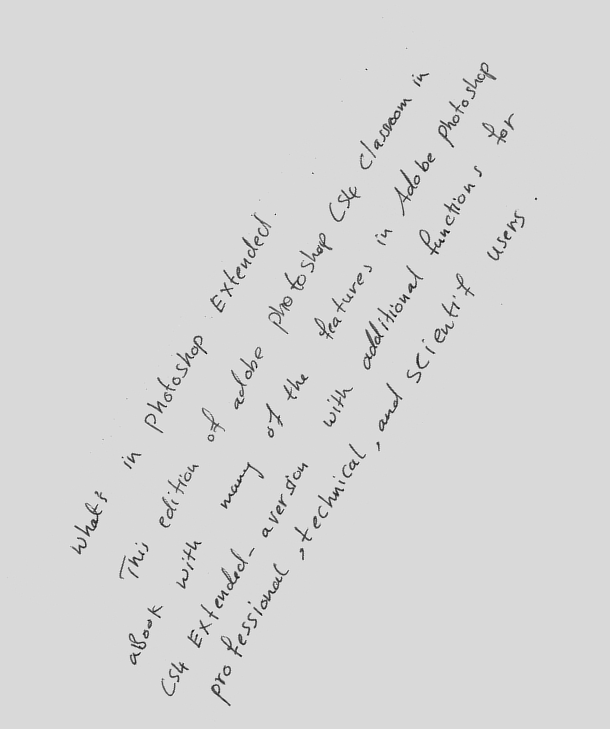 what's in photoshop Extended
This edition of adobe photoshop CS4 classroom in
aBook with many of the features in Adobe photoshop
CS4 Extended- aversion with additional functions for
professional, technical, and scientif users.